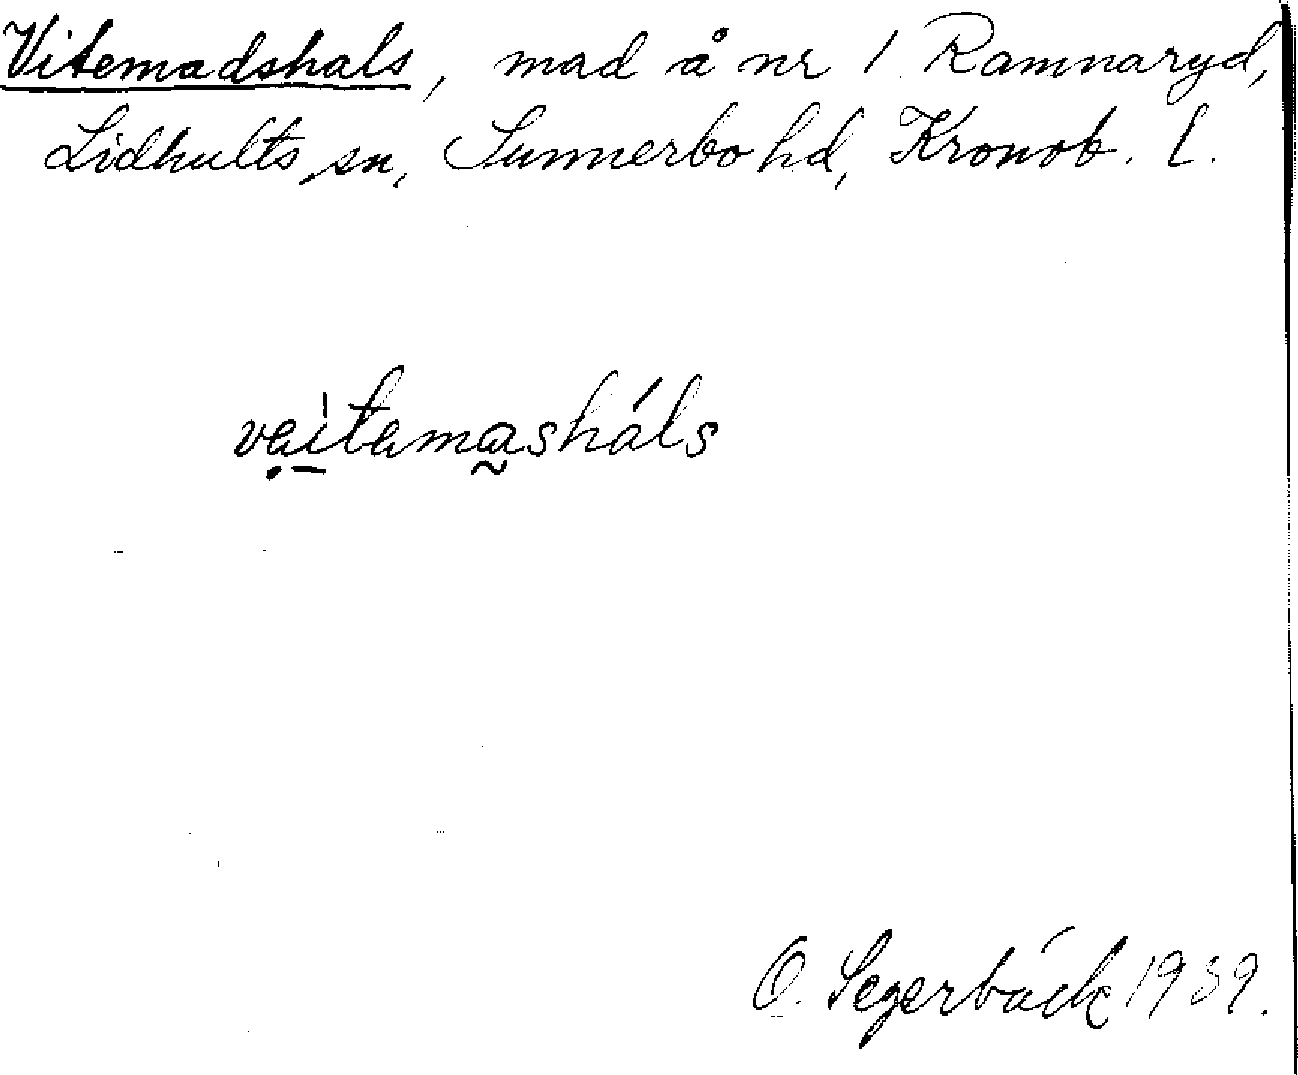 Vitemadshals, mad å nr 1 Ramnaryd,
Lidhults sn, Sunnerbo hd, Kronob. l.
vaitamasháls
O. Segerbäck 1939.